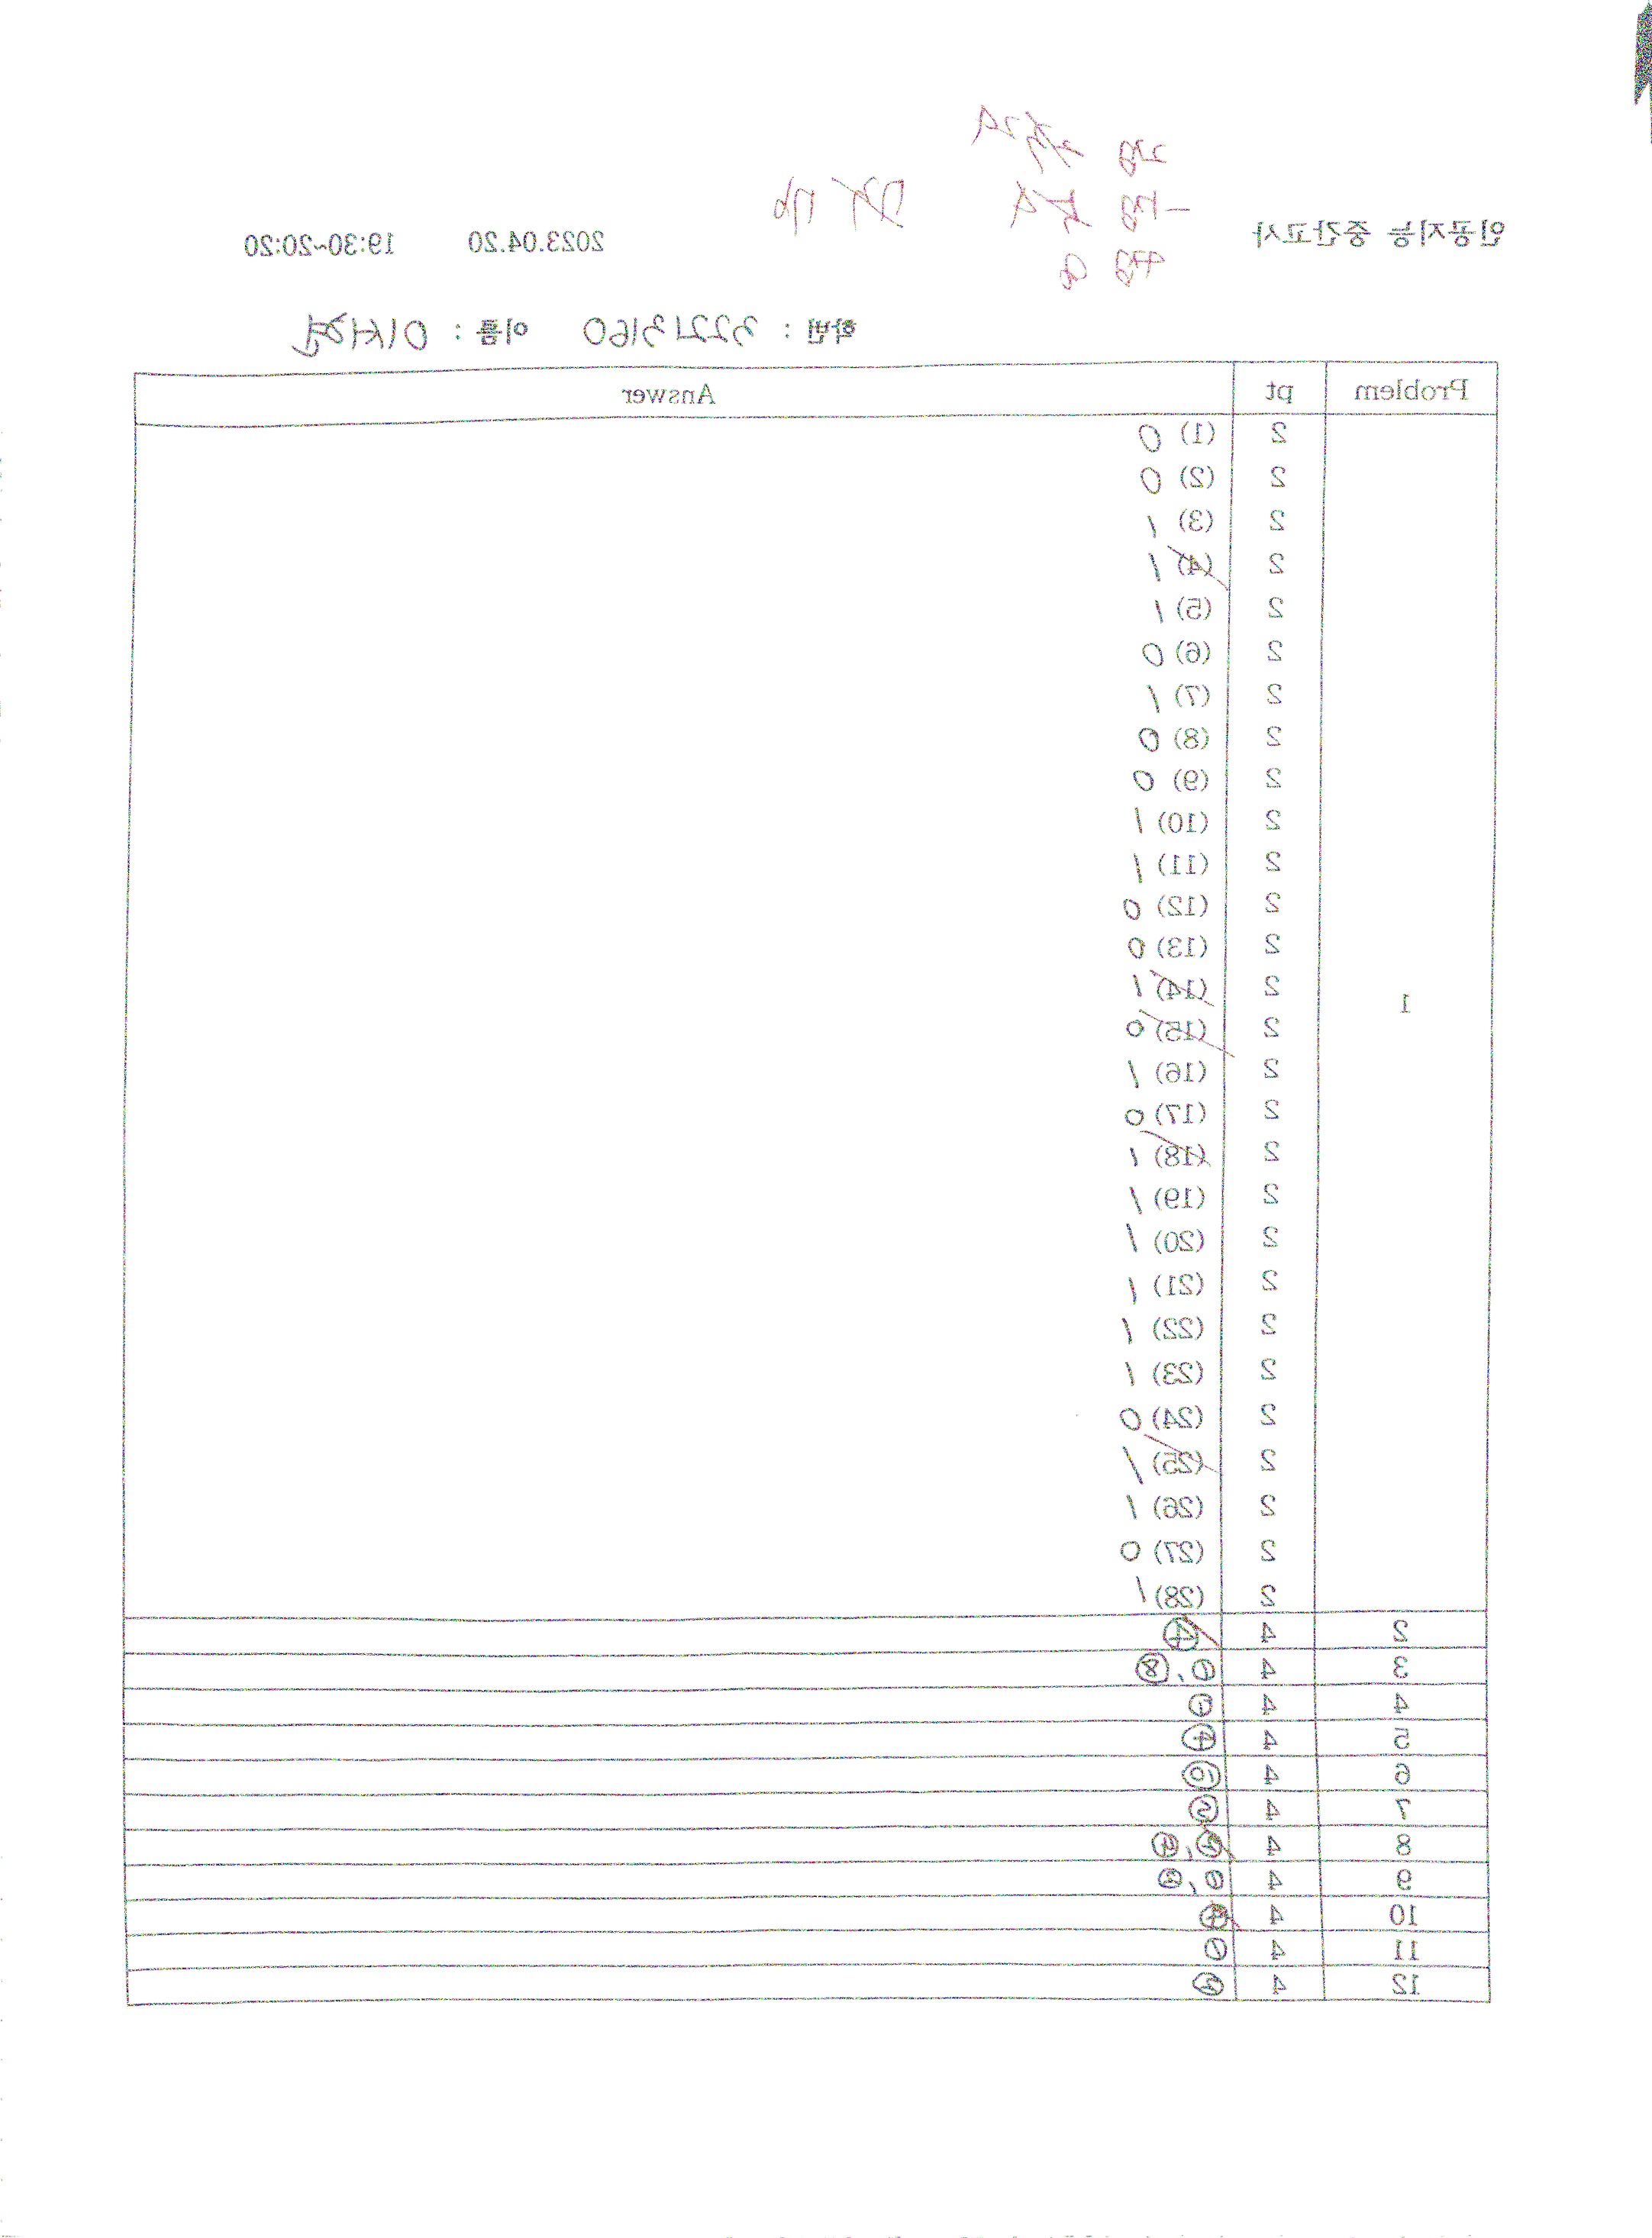 인공지능 중간고사 2023.04.20 19:30~20:20
학번 : 32213160 이름 : 이서현
Problem pt Answer
1
2 (1) 0
2 (2) 0
2 (3) 1
2 (4) 1
2 (5) 1
2 (6) 0
2 (7) 1
2 (8) 0
2 (9) 0
2 (10) 1
2 (11) 1
2 (12) 0
2 (13) 0
2 (14) 1
2 (15) 0
2 (16) 1
2 (17) 0
2 (18) 1
2 (19) 1
2 (20) 1
2 (21) 1
2 (22) 1
2 (23) 1
2 (24) 0
2 (25) 1
2 (26) 1
2 (27) 0
2 (28) 1
2 4 ④
3 4 ①, ⑧
4 4 ①
5 4 ④
6 4 ⑩
7 4 ②
8 4
9 4
10 4
11 4 ①
12 4